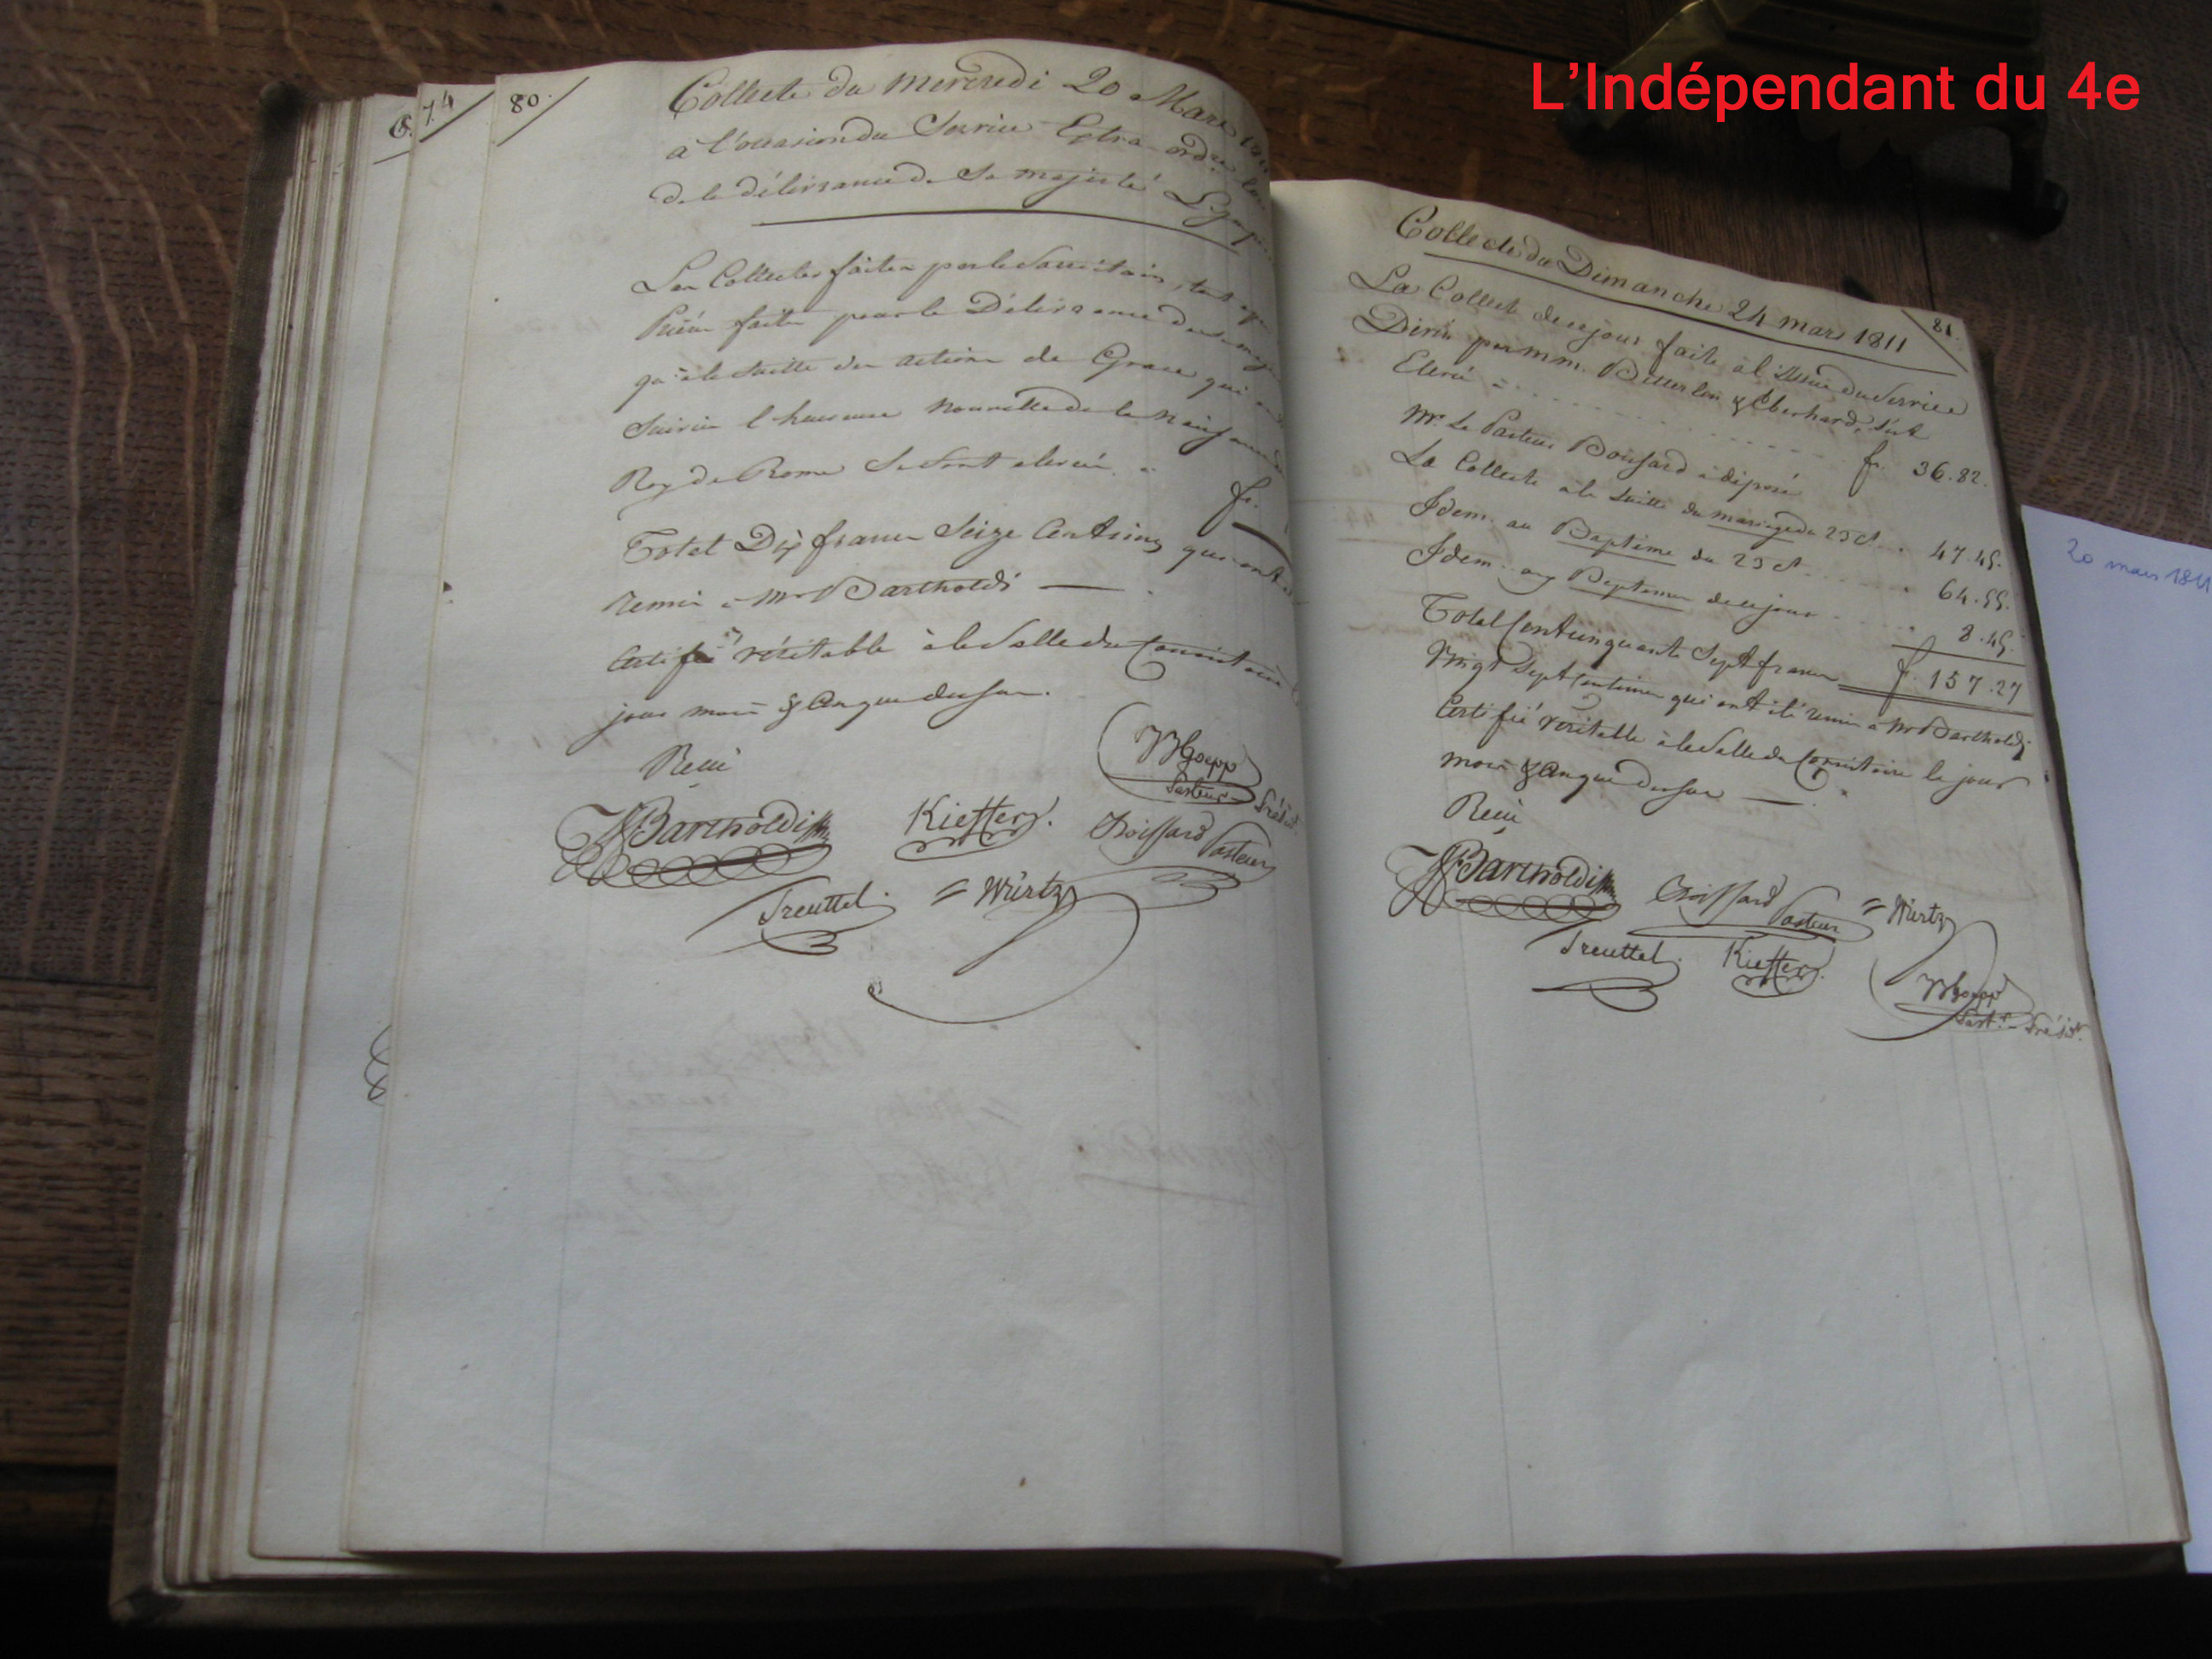 L'Indépendant du 4e
74
80.
Collecte du Mercredi 20 Mars
à l'occasion du Service Extra-ordre
de la délivrance de Sa majesté L'Imp
Les Collectes faites par le Consistoire, tant
Prière faite pour la Délivrance de Sa maj
qu'à la suite des actions de Grace qui
Suivies l'heureuse nouvelle de la Naissance
Roy de Rome Se Sont elevées à fr.
Total Dix francs Seize Centimes qui ont
remis à Mr Bartholdi
Certifié véritable à la Salle du Consistoire
jour mois & An que dessus.
Reçu
Goepp
Pasteur Présid
Bartholdi
Kieffer.
Boissard Pasteur
Treuttel.
= Würtz
81.
Collecte du Dimanche 24 mars 1811
La Collecte de ce jour faite à l'issue du Service
Divin par mm. & Eberhard, s'est
Elevée à fr. 36.82.
Mr. Le Pasteur Boissard a déposé
La Collecte à la suite du mariage du 23 ct. 47.45.
Idem. au Baptême du 23 ct. 64.55.
Idem. aux Baptêmes de ce jour 8.45.
Total Cent cinquante Sept francs f. 157.27
Vingt Sept Centimes qui ont été remis à Mr Bartholdi
Certifié véritable à la Salle du Consistoire le jour
mois & An que dessus
Reçu
Bartholdi
Boissard Pasteur
= Würtz
Treuttel.
Kieffer.
Goepp
Past.r Présid.t
20 mars 1811